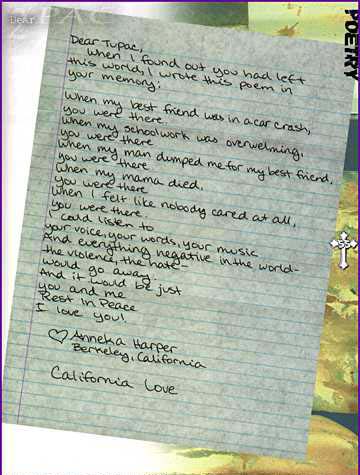 Dear 2PAC
POETRY
Dear Tupac,
When I found out you had left
this world, I wrote this poem in
your memory:
When my best friend was in a car crash,
you were there.
When my schoolwork was overwelming,
you were there
When my man dumped me for my best friend,
you were there
When my mama died,
you were there
When I felt like nobody cared at all,
you were there.
I could listen to
your voice, your words, your music
And everything negative in the world-
the violence, the hate-
would go away.
And it would be just
you and me
Rest In Peace
I love you!
♡ Anneka Harper
Berkeley, California
California Love
55